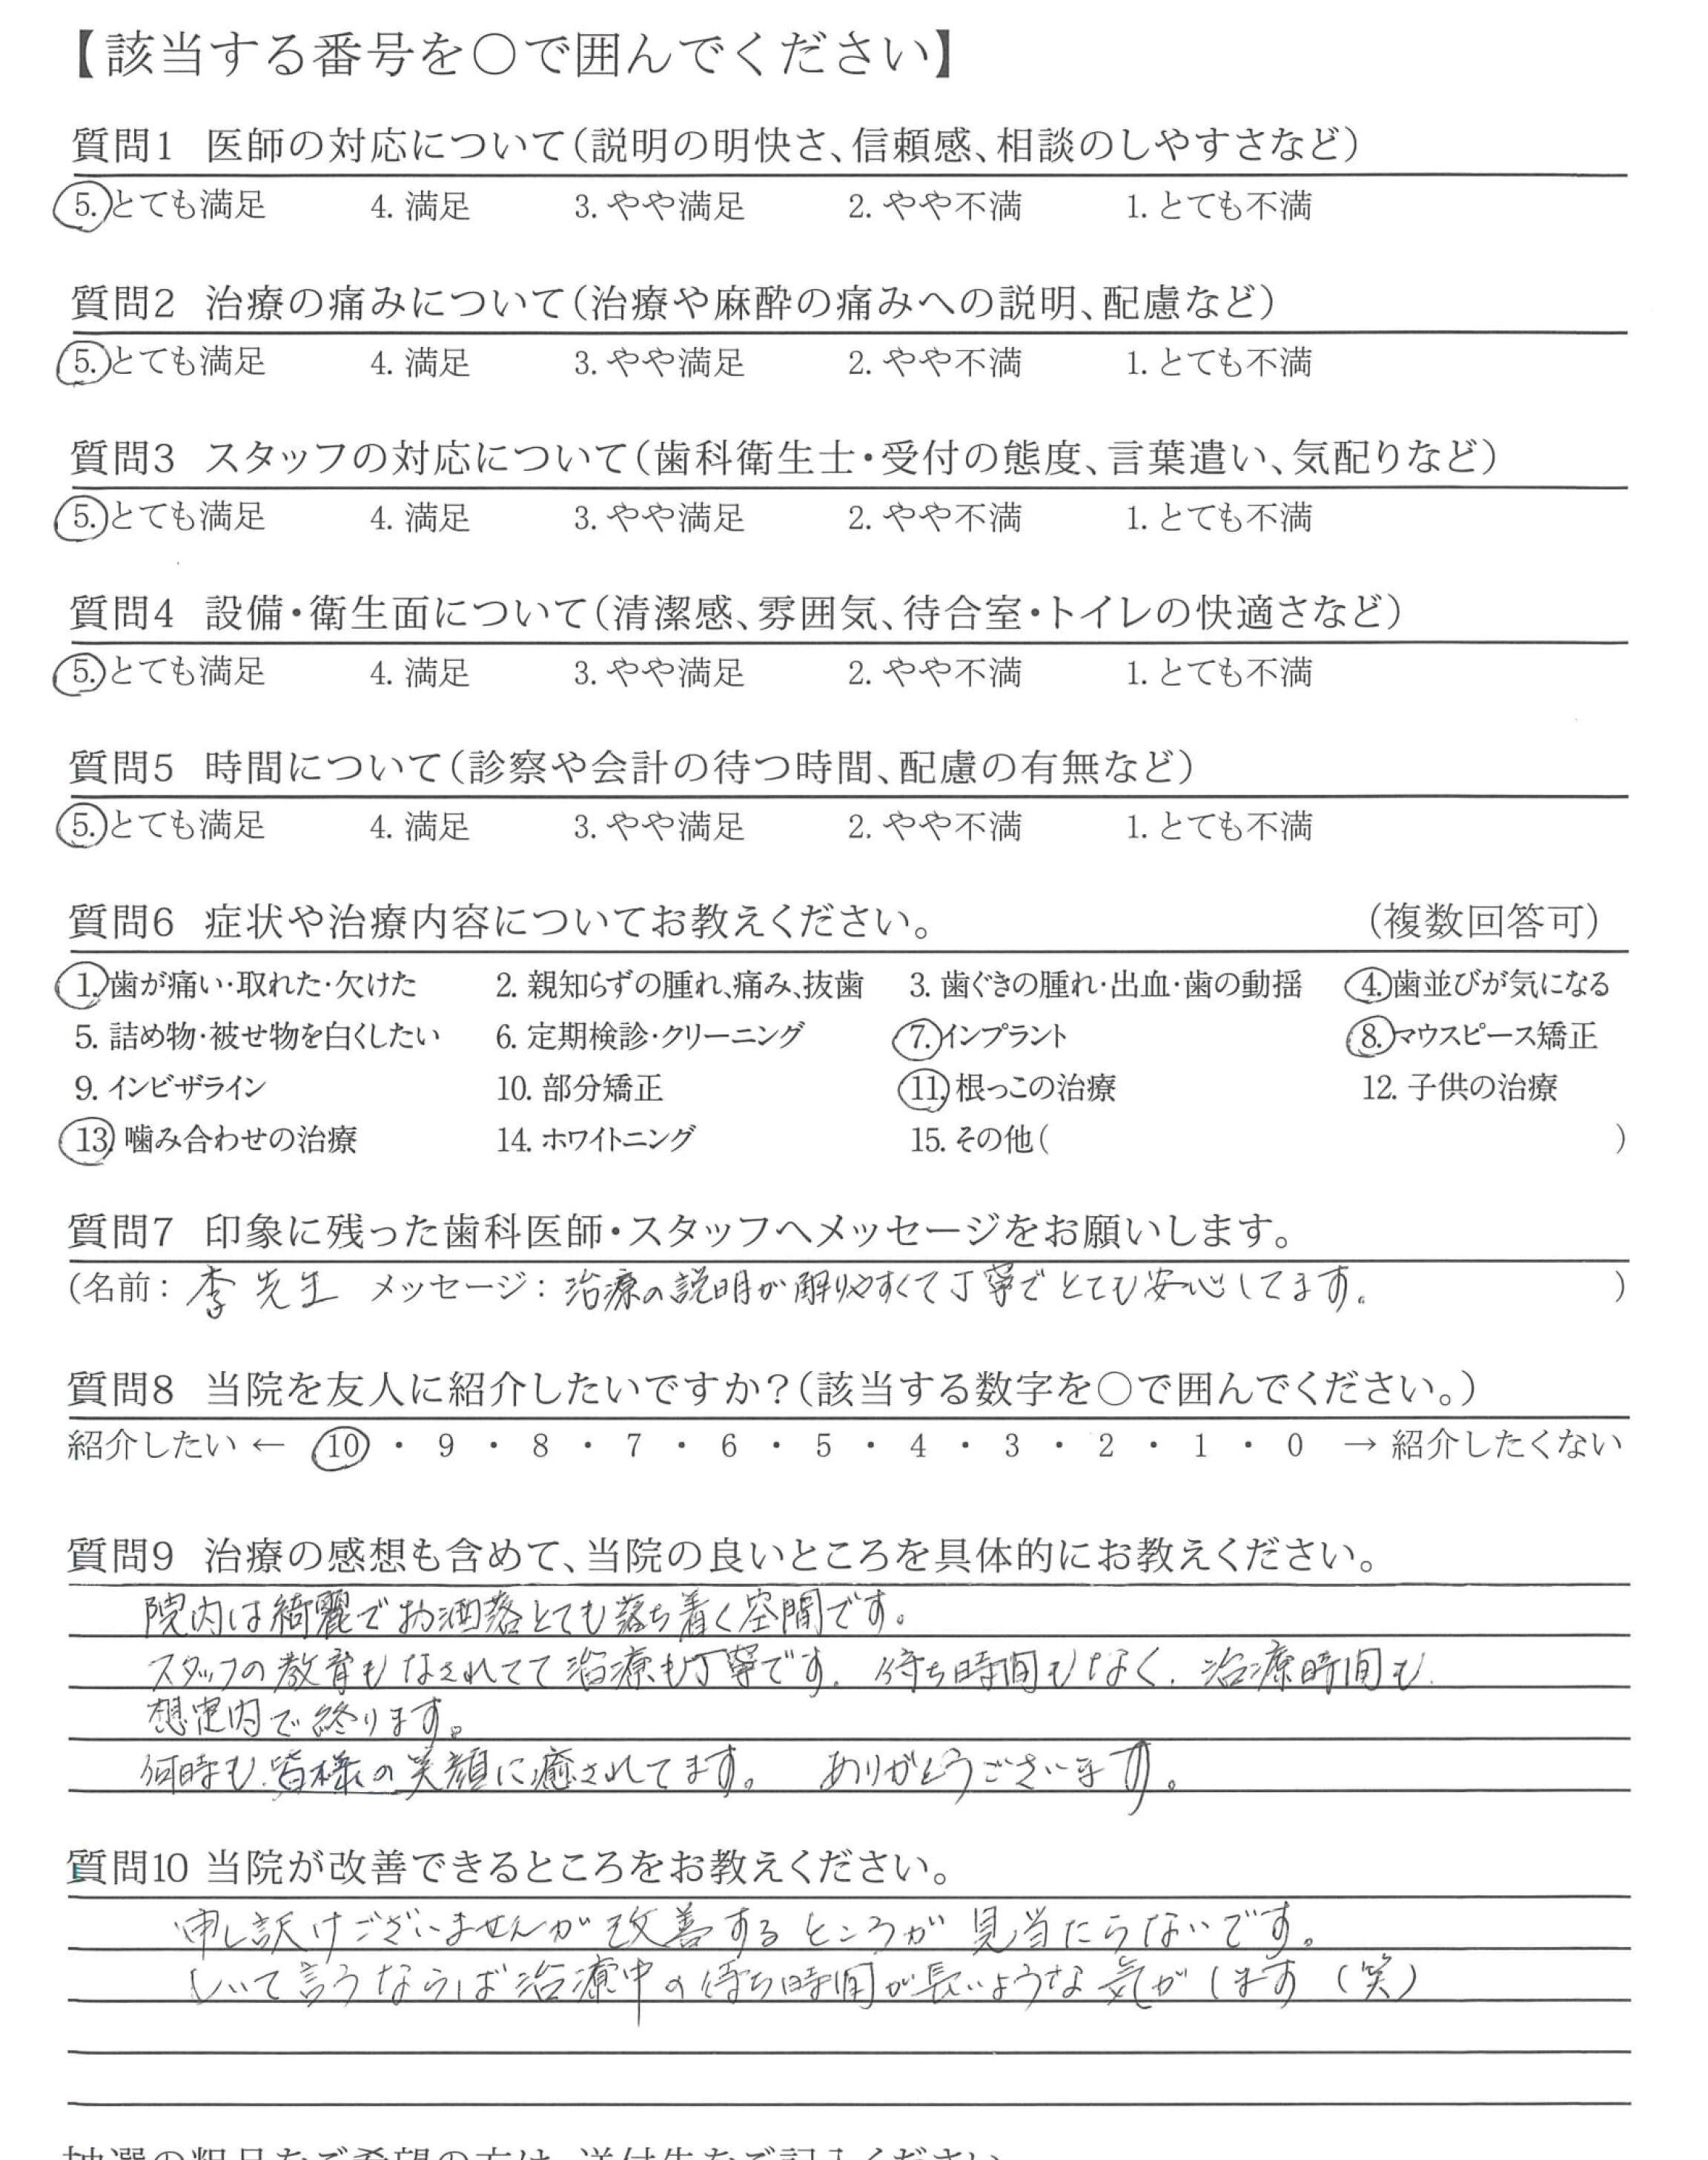 【該当する番号を○で囲んでください】
質問1 医師の対応について(説明の明快さ、信頼感、相談のしやすさなど)
5. とても満足 4. 満足 3. やや満足 2. やや不満 1. とても不満
質問2 治療の痛みについて(治療や麻酔の痛みへの説明、配慮など)
5. とても満足 4. 満足 3. やや満足 2. やや不満 1. とても不満
質問3 スタッフの対応について(歯科衛生士・受付の態度、言葉遣い、気配りなど)
5. とても満足 4. 満足 3. やや満足 2. やや不満 1. とても不満
質問4 設備・衛生面について(清潔感、雰囲気、待合室・トイレの快適さなど)
5. とても満足 4. 満足 3. やや満足 2. やや不満 1. とても不満
質問5 時間について(診察や会計の待つ時間、配慮の有無など)
5. とても満足 4. 満足 3. やや満足 2. やや不満 1. とても不満
質問6 症状や治療内容についてお教えください。 (複数回答可)
1. 歯が痛い・取れた・欠けた 2. 親知らずの腫れ、痛み、抜歯 3. 歯ぐきの腫れ・出血・歯の動揺 4. 歯並びが気になる
5. 詰め物・被せ物を白くしたい 6. 定期検診・クリーニング 7. インプラント 8. マウスピース矯正
9. インビザライン 10. 部分矯正 11. 根っこの治療 12. 子供の治療
13. 噛み合わせの治療 14. ホワイトニング 15. その他( )
質問7 印象に残った歯科医師・スタッフへメッセージをお願いします。
(名前: 李先生 メッセージ: 治療の説明が解りやすくて丁寧でとても安心してます。 )
質問8 当院を友人に紹介したいですか?(該当する数字を○で囲んでください。)
紹介したい ← 10 ・ 9 ・ 8 ・ 7 ・ 6 ・ 5 ・ 4 ・ 3 ・ 2 ・ 1 ・ 0 → 紹介したくない
質問9 治療の感想も含めて、当院の良いところを具体的にお教えください。
院内は綺麗でお洒落とても落ち着く空間です。
スタッフの教育もなされてて治療も丁寧です。待ち時間もなく、治療時間も
想定内で終ります。
何時も皆様の笑顔に癒されてます。 ありがとうございます。
質問10 当院が改善できるところをお教えください。
申し訳けございませんが改善するところが見当たらないです。
しいて言うならば治療中の待ち時間が長いような気がします(笑)
抽選の粗品をご希望の方は、送付先をご記入ください